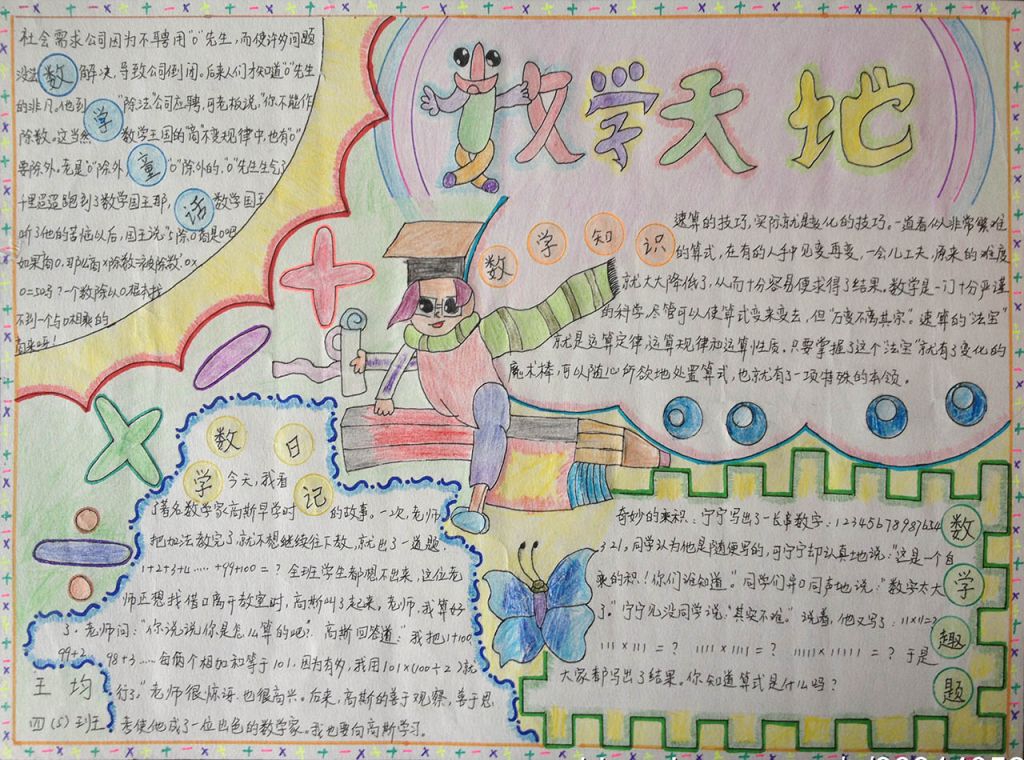 数学天地
社会需求公司因为不聘用"0"先生,而使许多问题
没法解决,导致公司倒闭。后来人们才知道"0"先生
的非凡。他到"除法"公司应聘,可老板说:"你不能作
除数。这当然数学王国的"商"不变规律中,也有"0"
要除外。老是"0"除外,"0"除外的,"0"先生生气了
千里迢迢跑到了数学国王那,数学国王
听了他的苦恼以后,国王说:"5除0商是0吧
如果商0,那么商×除数
0=50吗?一个数除以0根本找
不到一个与0相乘的
商来呀!
数学童话
数学知识
速算的技巧,实际就是变化的技巧。一道看似非常繁难
的算式,在有的人手中见变再变,一会儿工夫,原来的难度
就大大降低了,从而十分容易便求得了结果。数学是一门十分严谨
的科学,尽管可以使算式变来变去,但"万变不离其宗"。速算的"法宝"
就是运算定律,运算规律和运算性质。只要掌握了这个"法宝"就有了变化的
魔术棒,可以随心所欲地处置算式,也就有了一项特殊的本领。
数学日记
今天,我看
了著名数学家高斯早学时的故事。一次,老师
把加法教完了,就不想继续往下教,就出了一道题:
1+2+3+4……+99+100=?全班学生都想不出来,这位老
师正想找借口离开教室时,高斯叫了起来,老师,我算好
了。老师问:"你说说你是怎么算的吧?高斯回答道:"我把1+100
99+2 98+3……每俩个相加和等于101.因为有妙,我用101×(100÷2)就
行了。"老师很惊讶,也很高兴。后来,高斯的善于观察,善于思
考使他成了一位出色的数学家。我也要向高斯学习。
王 均
四(5)班
数学趣题
奇妙的乘积:宁宁写出了一长串数字:1234567898765 4
321,同学认为他是随便写的,可宁宁却认真地说:"这是一个自
乘的积!你们谁知道"。同学们异口同声地说:"数字太大
了。"宁宁见没同学说:"其实不难"。说着,他又写了:11×11=?
111×111=? 1111×1111=? 11111×11111=?于是
大家都写出了结果。你知道算式是什么吗?